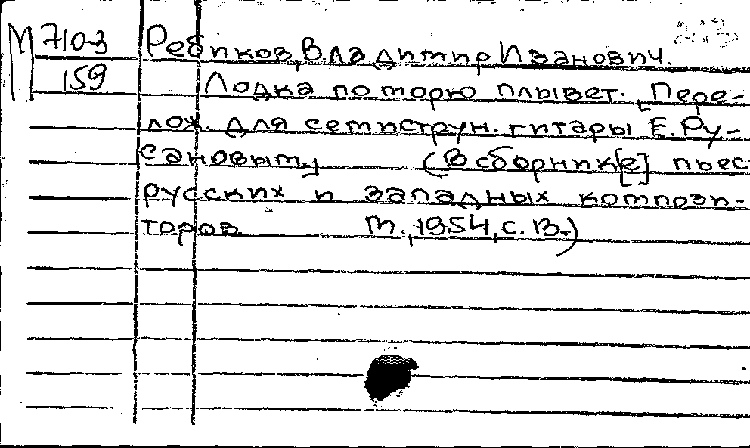 М 7103 Ребиков, Владимир Иванович.
159 Лодка по морю плывет. [Пере-
лож. для семиструн. гитары Е. Ру-
сановым] (В сборник[е] пьес
русских и западных компози-
торов М., 1954, с. 13.)